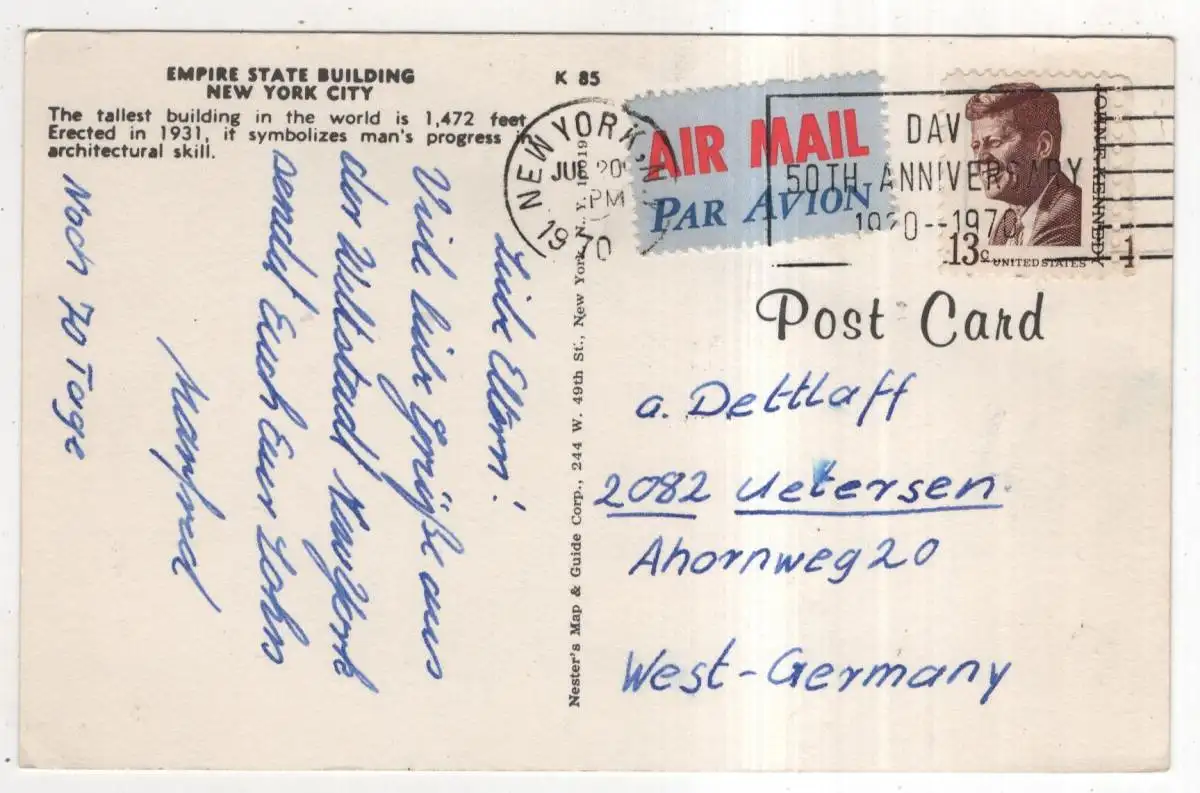 EMPIRE STATE BUILDING
NEW YORK CITY
The tallest building in the world is 1,472 feet
Erected in 1931, it symbolizes man's progress
architectural skill.
K 85
Liebe Eltern!
Viele liebe Grüße aus
der Weltstadt Newyork
sendet Euch Euer Sohn
Manfred
Noch 70 Tage
Nester's Map & Guide Corp., 244 W. 49th St., New York, N. Y. 10019
NEW YORK, N.Y.
20
PM
1970
AIR MAIL
PAR AVION
DAV
50TH ANNIVERSARY
1920--1970
JOHN F. KENNEDY
13c
UNITED STATES
Post Card
a. Dettlaff
2082 Uetersen
Ahornweg 20
West-Germany